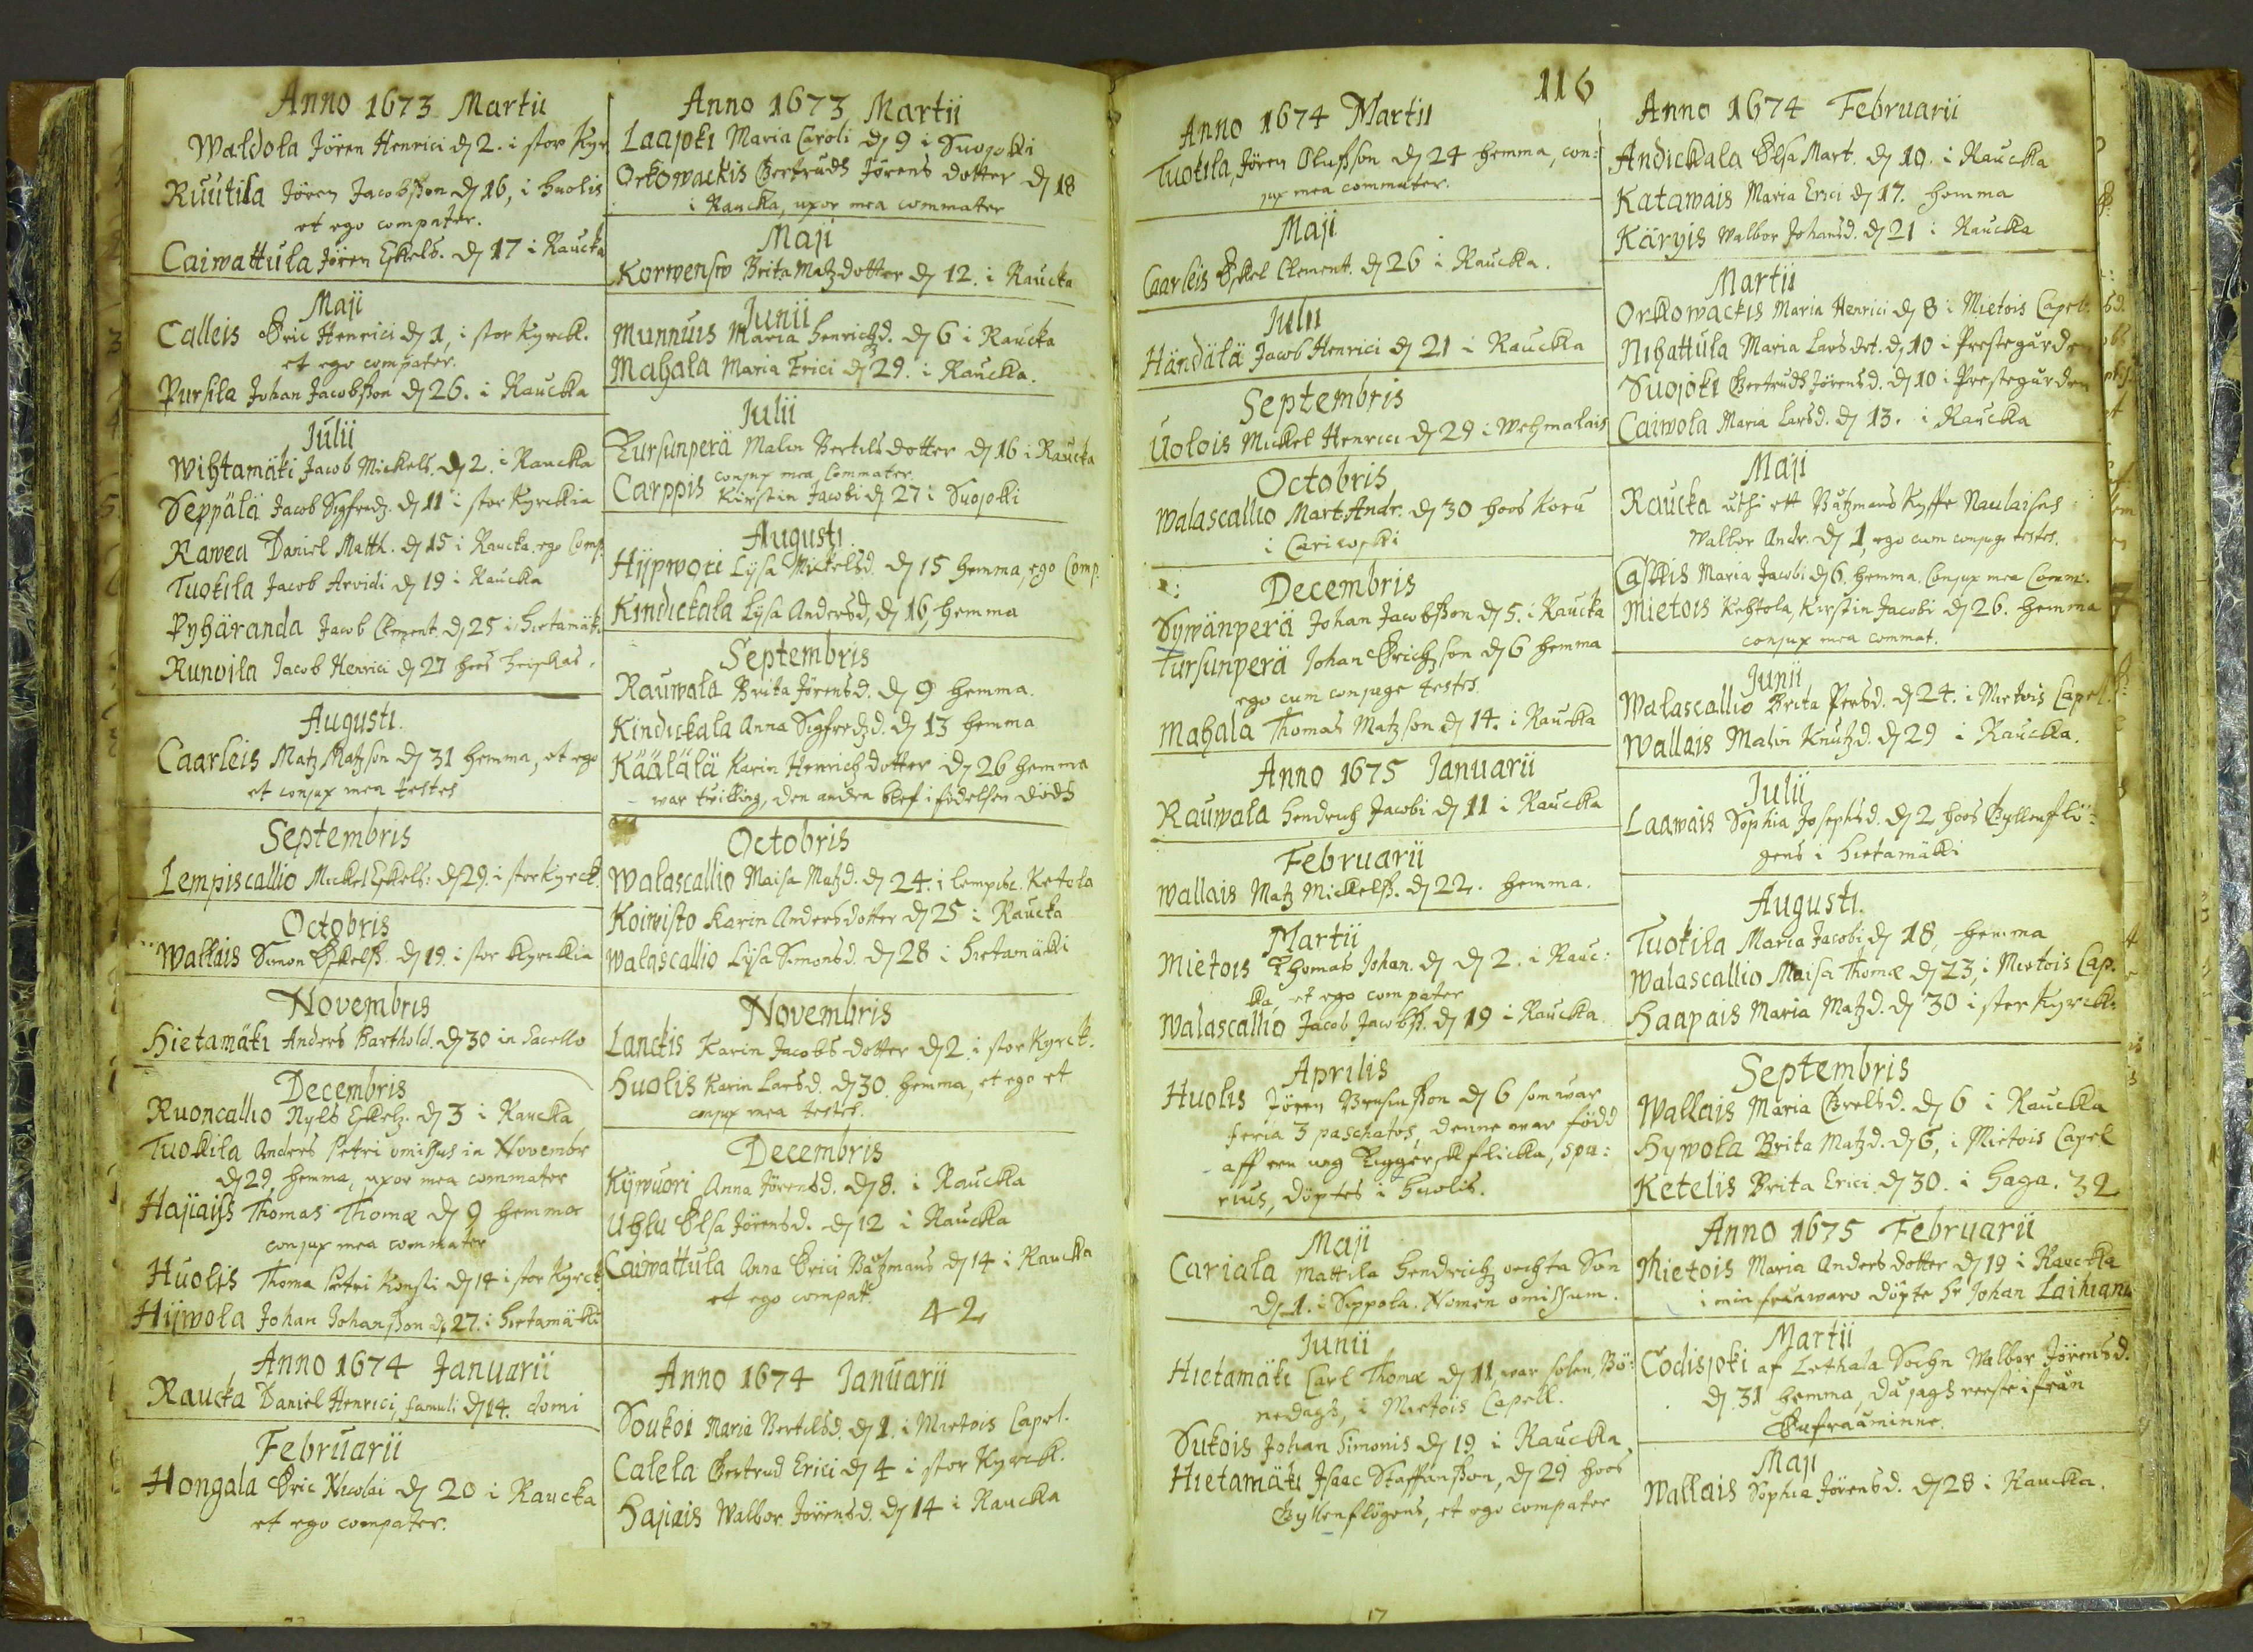 Anno 1673 Martii
Waldola Jören Henrici d. 2. i stor Kyr
Ruutila Jören Jacobsson d. 16, i Huolis
et ego compater.
Caiwattula Jören Eskels. d. 17 i Raucka
Maji
Calleis Eric Henrici d. 1, i stor Kyrck.
et ego compater.
Pursila Johan Jacobsson d. 26. i Rauckka
Julii
Wihtamäki Jacob Mickels. d. 2. i Rauckka
Seppälä Jacob Sigfredz. d. 11 i stor Kyrckia
Rawea Daniel Matth. d. 15 i Raucka, ego Comp.
Tuokila Jacob Arvidi d. 19 i Raucka
Pyhäranda Jacob Clement. d. 25 i Hietamäki
Runoila Jacob Henrici d. 27 hoos
Augusti.
Caarleis Matz Matzson d. 31 hemma, et ego
et conjux mea testes
Septembris
Lempiscallio Mickel Eskels: d. 29. i stor Kyrck.
Octobris
Wallais Simon Eskelss. d. 19. i stor Kyrckia
Novembris
Hietamäki Anders Barthold. d. 30 in Sacello
Decembris
Ruoncallio Nyls Eskelz. d. 3 i Raucka
Tuokila Anders Petri omissus in Novembr
d. 29, hemma, uxor mea commater
Hajiaijs Thomas Thomæ d. 9 hemma
conjux mea commater
Huolis Thoma Petri Konsti d. 14 i stor Kyrck.
Hijwola Johan Johansson d. 27. i Hietamäkki
Anno 1674 Januarii
Raucka Daniel Henrici, famuli d. 14. domi
Februarii
Hongala Eric Nicolai d. 20 i Raucka
et ego compater.
Anno 1673 Martii
Laajoki Maria Caroli d. 9 i Suojokki
Orkowackis Gertruds Jörens dotter d. 18
i Raucka, uxor mea commater
Maji
Korwensw Brita Matzdotter d. 12. i Raucka
Junii
Munnuis Maria Henrichzd. d. 6 i Raucka
Mahala Maria Erici d. 29. i Rauckka.
Julii
Tursunperä Malin Bertilsdotter d. 16 i Raucka
conjux mea Commater.
Carppis Kirstin Jacobi d. 27 i Suojokki
Augusti.
Hijpwori Lijsa Mickelsd. d. 15 hemma, ego Comp.
Kindickala Lijsa Andersd. d. 16, hemma
Septembris
Rauwala Brita Jörensd. d. 9 hemma.
Kindickala Anna Sigfredzd. d. 13 hemma
Käälälä Karin Henrich dotter d. 26 hemma
war tvilling, den andra blef i födelsen dödh
Octobris
Walascallio Maisa Matzd. d. 24. i Lempisc. Ketola
Koiwisto Karin Andersdotter d. 25 i Raucka
Walascallio Lijsa Simonsd. d. 28 i Hietamäkki
Novembris
Lanckis Karin Jacobs dotter d. 2. i stor Kyrck.
Huolis Karin Larsd. d. 30. hemma, et ego et
conjux mea testes.
Decembris
Kijwuori Anna Jörensd. d. 8. i Rauckka
Uhlu Elsa Jörensd. d. 12 i Rauckka
Caiwattula Anna Erici Båtzmans d. 14 i Raucka
et ego compat.
42
Anno 1674 Januarii
Soukoi Maria Bertilsd. d. 1. i Mietois Capel.
Calela Gertrud Erici d. 4 i stor Kyrck.
Hajiais Walbor Jörensd. d. 14 i Rauckka
116
Anno 1674 Martii
Tuokila, Jören Olufsson d. 24 hemma, con:
jux mea commater.
Maji
Caarleis Eskel Clement. d. 26 i Rauckka.
Julii
Händälä Jacob Henrici d. 21 i Rauckka
Septembris
Uolois Mickel Henrici d. 29 i Wehmalais
Octobris
Walascallio Mart. Andr. d. 30 hoos Koru
i
Decembris
Sywänperä Johan Jacobsson d. 5. i Raucka
Tursunperä Johan Erichson d. 6 hemma
ego cum conjuge testes.
Mahala Thomas Matzson d. 14. i Rauckka
Anno 1675 Januarii
Rauwala Hendrich Jacobi d. 11 i Rauckka
Februarii
Wallais Matz Mickelss. d. 22. hemma.
Martii
Mietois Thomas Johan. d. d. 2. i Rauc:
ka, et ego compater
Walascallio Jacob Jacobss. d. 19 i Rauckka.
Aprilis
Huolis Jören d. 6 som war
feria 3 paschatos, denne war född
aff een ung flicka, spu:
rius, döptes i Huolis.
Maji
Cariala Mattila Hendrichz Son
d. 1. i Seppola. Nomen omissum.
Junii
Hietamäki Carl Thomæ d. 11, war Bö:
nedagh, i Mietois Capell.
Sukois Johan Simonis d. 19 i Rauckka
Hietamäki Isaac Staffansson, d. 29 hoos
Gyllenflögens, et ego compater
Anno 1674 Februarii
Andickala Elsa Mart. d. 10. i Rauckka
Katawais Maria Erici d. 17. hemma
Käryis Walbor Johansd. d. 21 i Rauckka
Martii
Orkowackis Maria Henrici d. 8 i Mietois Capel.
Nihattula Maria Lars dot. d. 10 i Prestegården
Suojoki Gertruds Jörensd. d. 10 i Prestegården
Caiwola Maria Larsd. d. 13. i Rauckka
Maji
Raucka uthi ett Båtzmans
Walbor Andr. d. 1, ego cum conjuge testes.
Caskis Maria Jacobi d. 6. hemma. Conjux mea Comm.
Mietois Kehtola, Kirstin Jacobi d. 26. hemma
conjux mea commat.
Junii
Walascallio Brita Persd. d. 24. i Mietois Capel.
Wallais Malin Knutzd. d. 29 i Rauckka.
Julii
Laawais Sophia Josephsd. d. 2 hoos Gyllenflö:
gens i Hietamäkki
Augusti.
Tuokila Maria Jacobi d. 18, hemma
Walascallio Maisa Thomæ d. 23, i Mietois Cap.
Haapais Maria Matzd. d. 30 i stor Kyrck:
Septembris
Wallais Maria d. 6 i Rauckka
Hywola Brita Matzd. d. 6, i Mietois Capel
Ketelis Brita Erici d. 30. i Haga. 32
Anno 1675 Februarii
Mietois Maria Anders dotter d. 19 i Rauckka
i min frånwaro döpte Hr Johan Laihiana
Martii
Codisjoki af Lethala Sochn Walbor Jörensd.
d. 31 hemma, då jagh reeste ifrån
Maji
Wallais Sophia Jörensd. d. 28 i Rauckka.